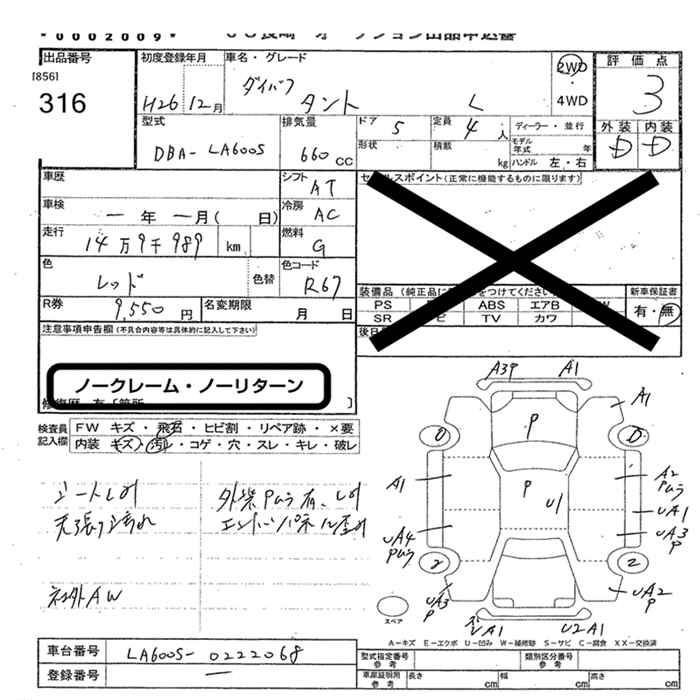 *0002009*
出品番号
[856]
316
初度登録年月
H26 12月
車名・グレード
ダイハツ
タント L
2WD
・
4WD
評価点
3
外装 内装
D D
型式
DBA-LA600S
排気量
660 CC
ドア 5
定員 4 人
ディーラー・並行
形状
積載 kg
モデル年式 年
ハンドル 左・右
車歴
シフト AT
車検 一 年 一 月( 日)
冷房 AC
走行 14万9千989 km
燃料 G
色 レッド
色替
色コード R67
R券 9,550 円
名変期限 月 日
セールスポイント(正常に機能するものに限ります)
装備品
PS ABS エアB
SR TV カワ
新車保証書
有・無
注意事項申告欄(不具合内容等は具体的に記入して下さい)
ノークレーム・ノーリターン
検査員記入欄
FW キズ・飛石・ヒビ割・リペア跡・×要
内装 キズ・汚レ・コゲ・穴・スレ・キレ・破レ
シートしみ
天張り汚れ
社外AW
外装Pムラ有、しみ
エンドパネル歪み
A3P A1
A1
P
D
A1
P
U1
A2
Pムラ
UA1
UA3
P
UA4
Pムラ
2 2
UA3
P
UA2
P
A1
U2A1
スペア
A-キズ E-エクボ U-凹み W-補修跡 S-サビ C-腐食 XX-交換済
車台番号 LA600S-0222068
登録番号 一
型式指定番号 参考
類別区分番号 参考
車庫証明用 参考
長さ cm
幅 cm
高さ cm